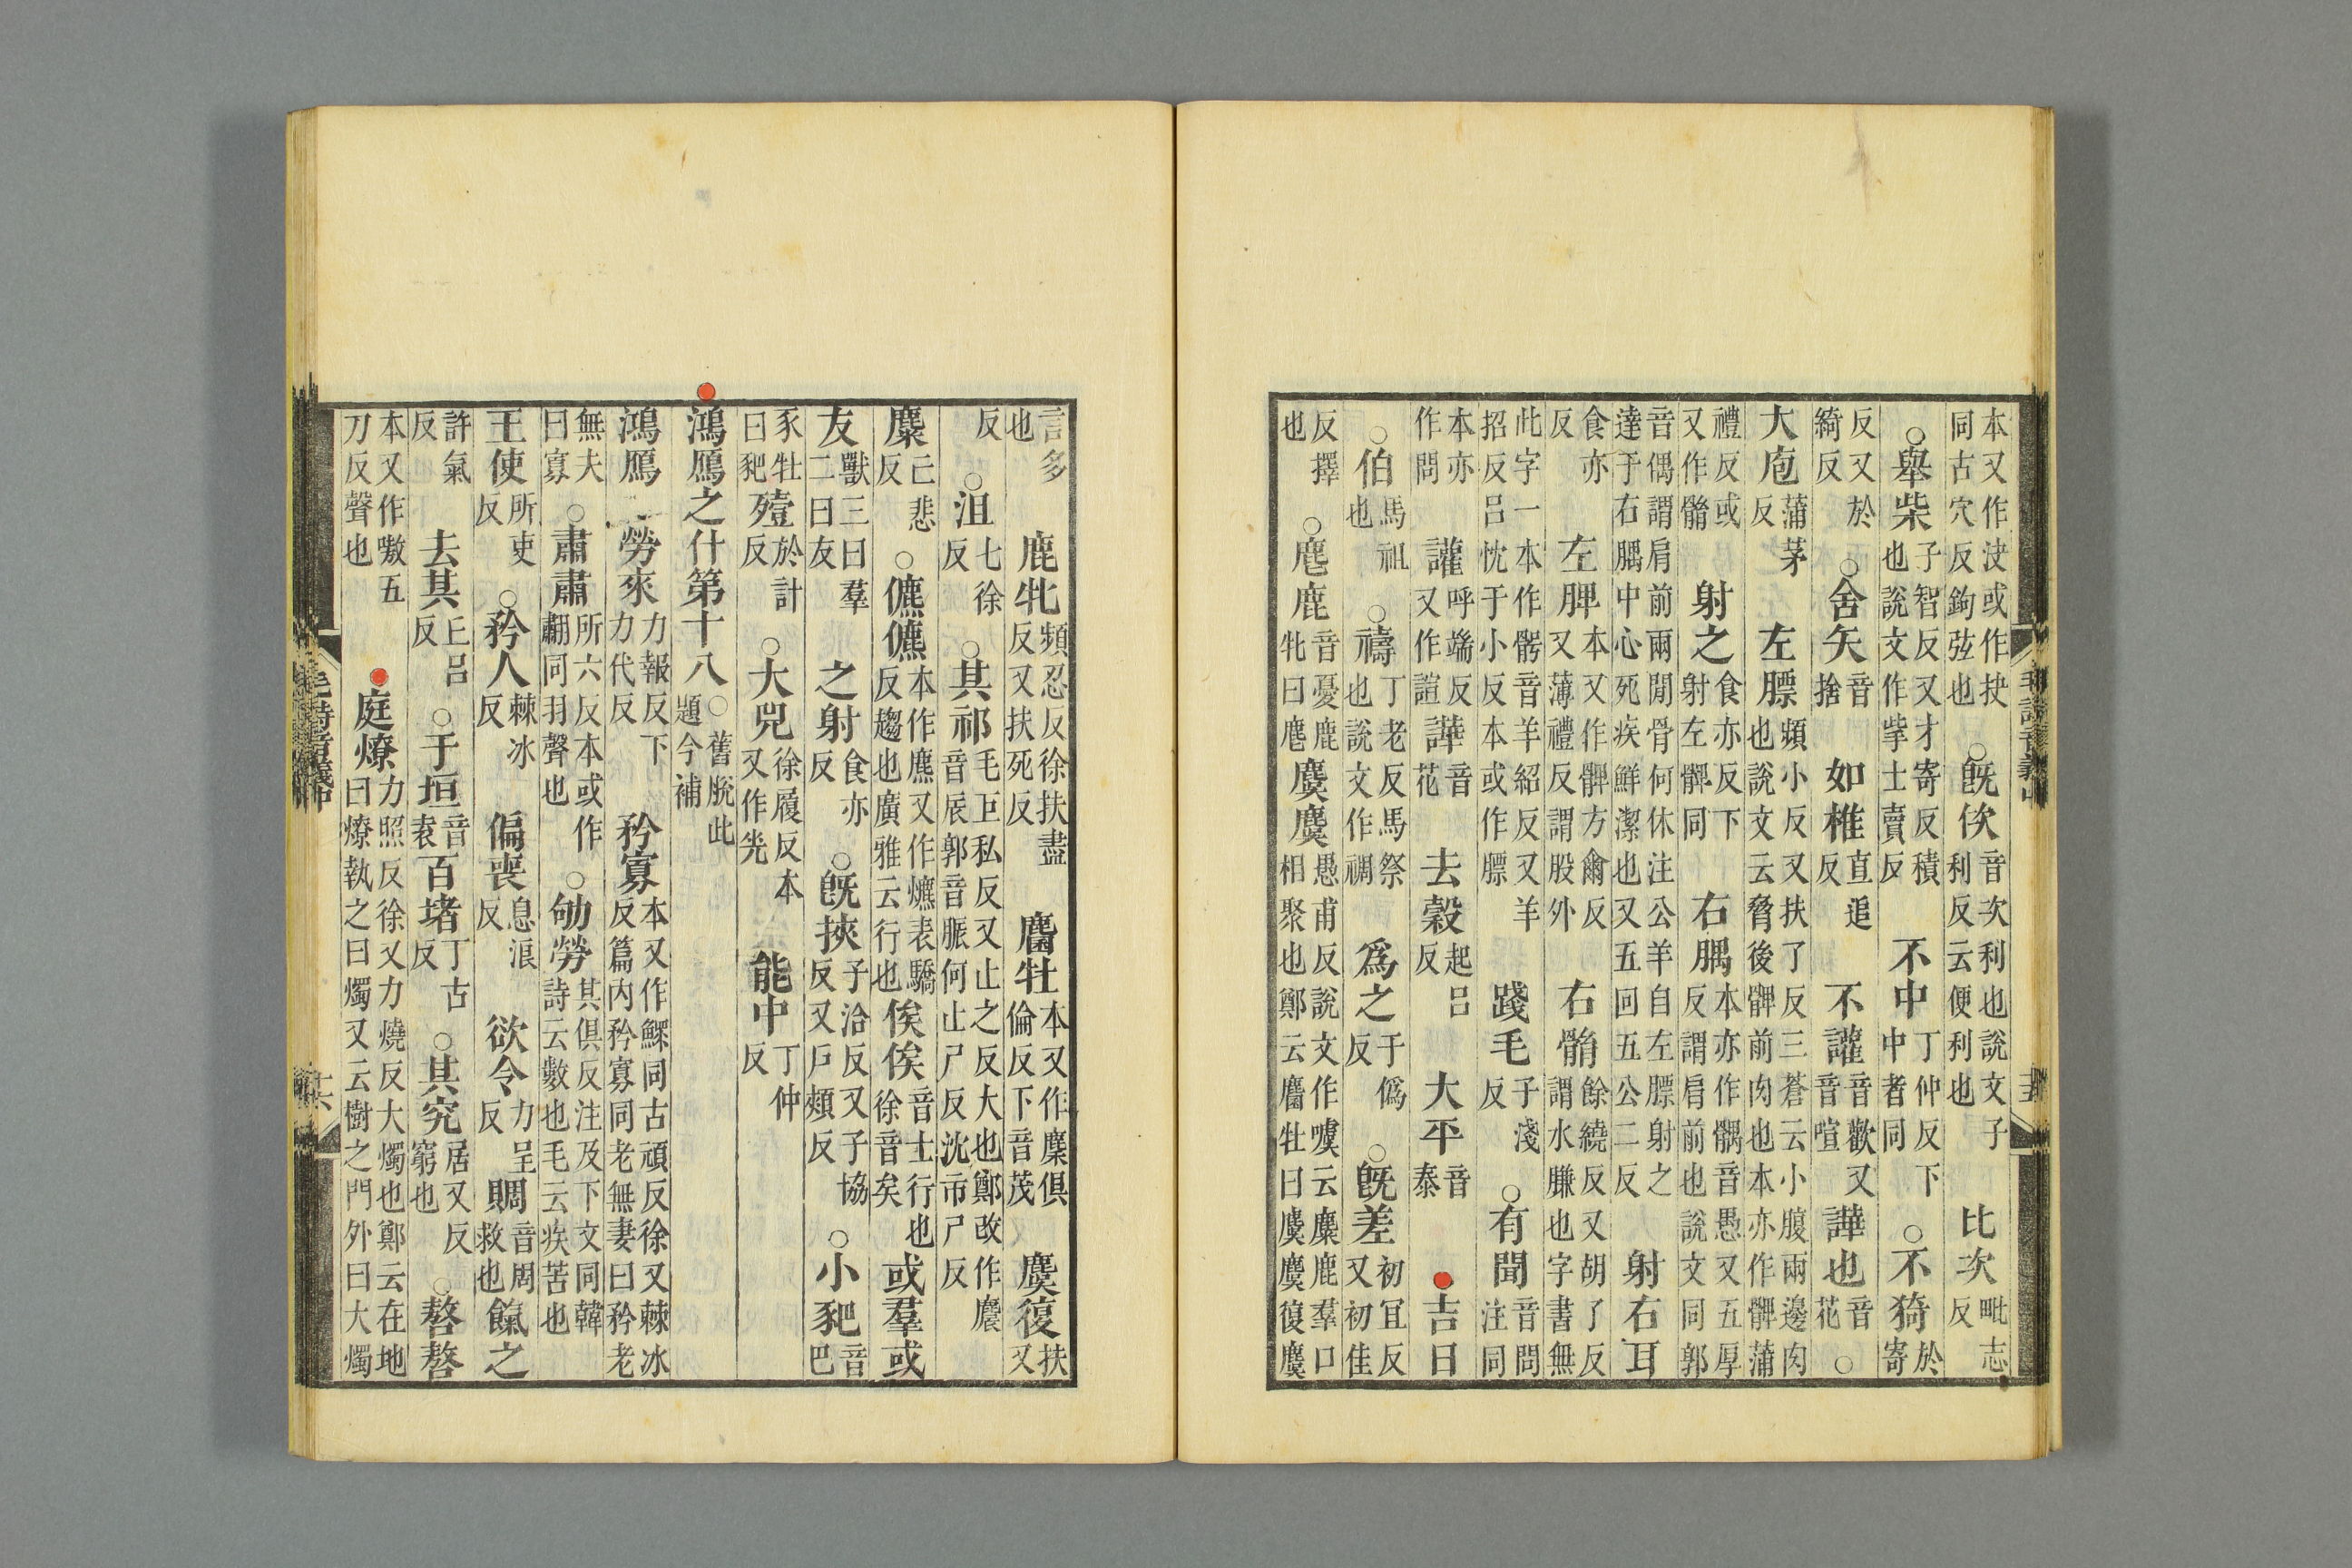 本又作決或作抉同古穴反鉤弦也○旣佽音次利也說文子利反云便利也比次毗志反
○舉柴子智反又才寄反積也說文作㧘士賣反不中丁仲反下中者同○不猗於寄
反又於綺反○舍矢音捨如椎直追反不讙音歡又音喧譁也音花○
大庖蒲茅反左膘頻小反又扶了反三蒼云小腹兩邊肉也說文云脅後髀前肉也本亦作髀蒲
禮反或又作䯚射之食亦反下射左髀同右腢本亦作髃音愚又五厚反謂肩前也說文同郭
音偶謂肩前兩閒骨何休注公羊自左膘射之達于右腢中心死疾鮮潔也又五回五公二反射右耳
食亦反左脾本又作髀方爾反又薄禮反謂股外右䯚餘繞反又胡了反謂水膁也字書無
此字一本作音羊紹反又羊招反呂忱于小反本或作膘踐毛子淺反○有聞音問注同
本亦作問讙呼端反又作諠譁音花去穀起呂反大平音泰吉日
○伯馬祖也○禱丁老反馬祭也說文作禂爲之于僞反○旣差初宜反又初佳
反擇也○麀鹿音憂鹿牝曰麀麌麌愚甫反說文作噳云麋鹿羣口相聚也鄭云麕牡曰麌麌復麌
毛詩音義中
言多也鹿牝頻忍反徐扶盡反又扶死反麕牡本又作麇俱倫反下音茂麌復扶又
反○沮七徐反○其祁毛巨私反又止之反大也鄭改作麎音辰郭音脤何止尸反沈市尸反
麋己悲反○儦儦本作麃又作爊表驕反趨也廣雅云行也俟俟音士行也徐音矣或羣或
友獸三曰羣二曰友之射食亦反○旣挾子洽反又子協反又戶頰反○小豝音巴
豕牡曰豝殪於計反○大兕徐履反本又作能中丁仲反
鴻鴈之什第十八○舊脫此題今補
鴻鴈勞來力報反下力代反矜寡本又作鰥同古頑反徐又棘冰反篇內矜寡同老無妻曰矜老
無夫曰寡○肅肅所六反本或作同羽聲也○劬勞其俱反注及下文同韓詩云數也毛云疾苦也
王使所吏反○矜人棘冰反偏喪息浪反欲令力呈反賙音周救也餼之
許氣反去其丘呂反○于垣音袁百堵丁古反○其究居又反窮也○嗸嗸
本又作嗷五刀反聲也庭燎力照反徐又力燒反大燭也鄭云在地曰燎執之曰燭又云樹之門外曰大燭
毛詩音義中
十六